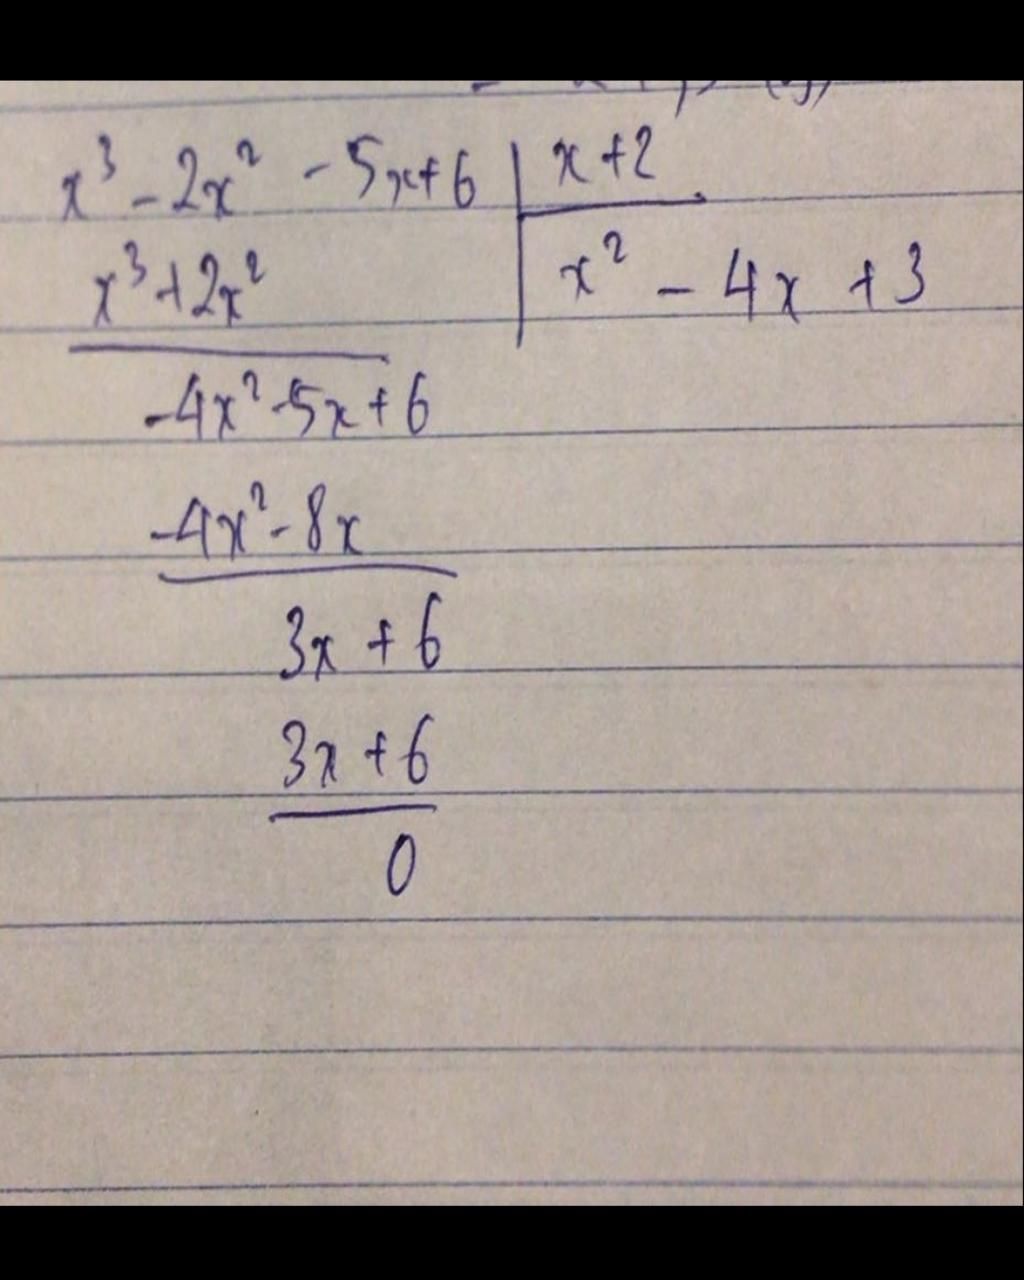 x³ - 2x² - 5x+6 | x+2
x³+2x² | x² - 4x +3
-4x²-5x+6
-4x²-8x
3x+6
3x+6
0